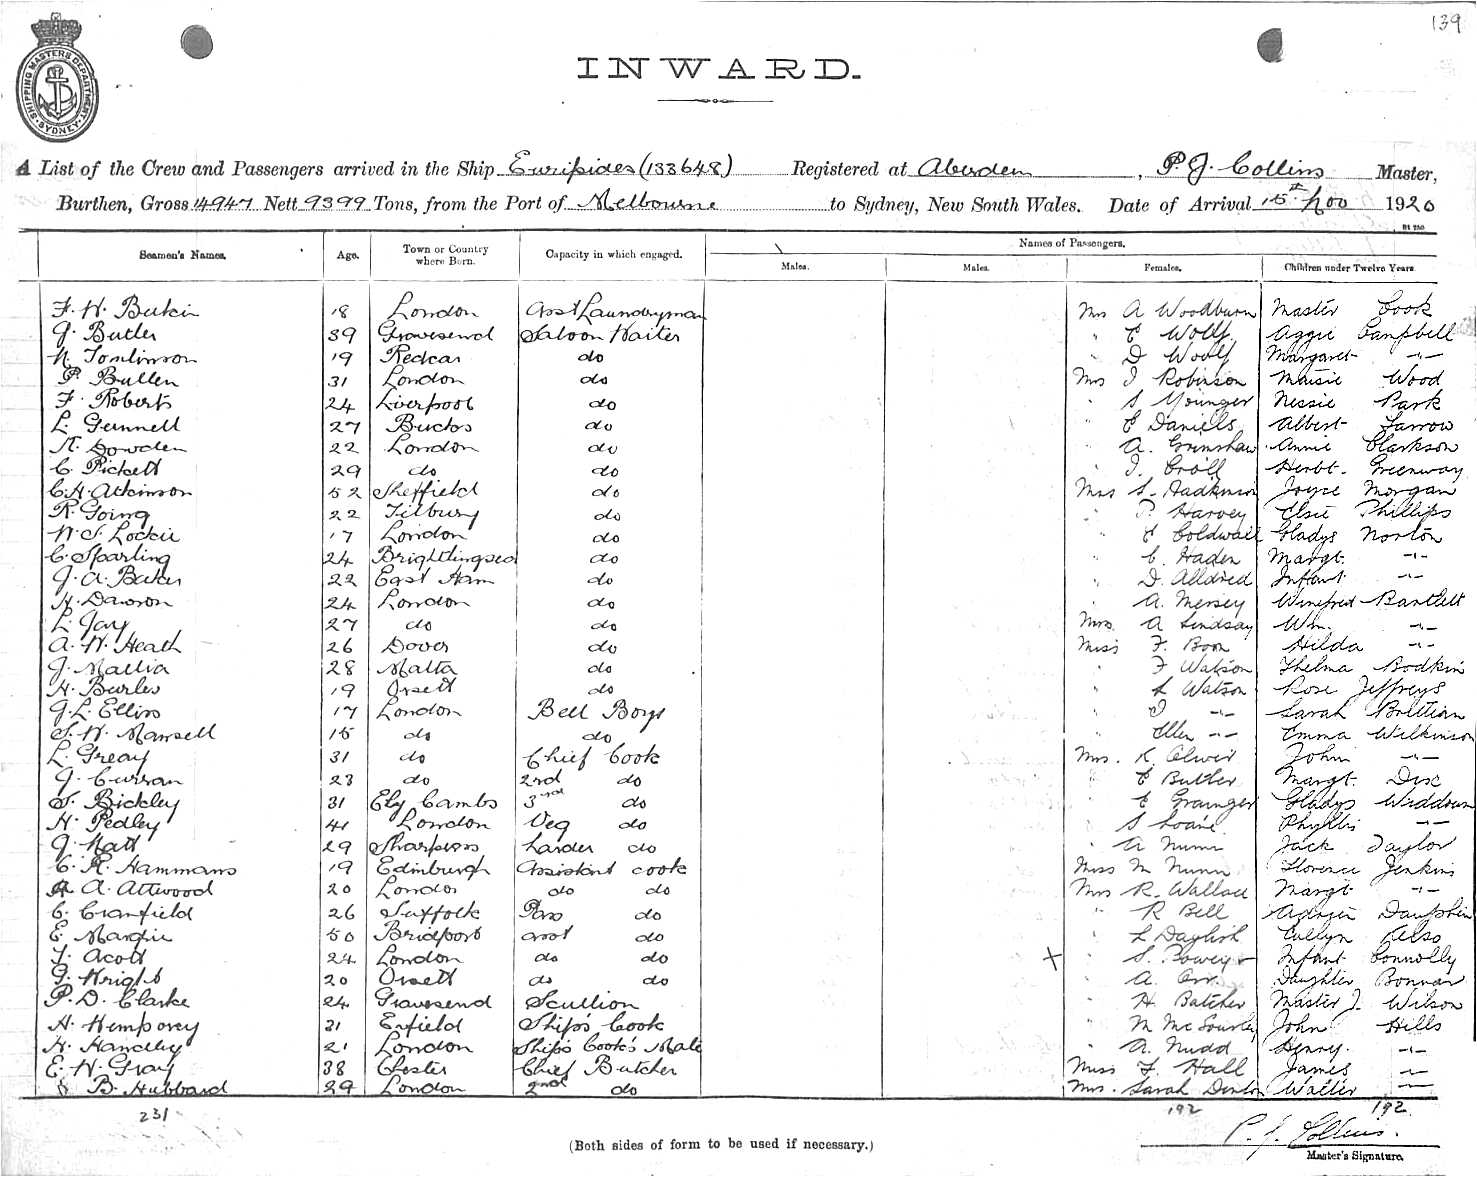 139
SHIPPING MASTERS DEPARTMENT
SYDNEY
INWARD.
A List of the Crew and Passengers arrived in the Ship Euripides (133648) Registered at Aberdeen, P. J. Collins Master,
Burthen, Gross 14947 Nett 9399 Tons, from the Port of Melbourne to Sydney, New South Wales. Date of Arrival 15th Nov 1920
Names of Passengers.
Seamen's Names. Age. Town or Country where Born. Capacity in which engaged. Males. Males. Females. Children under Twelve Years
F. H. 18 London Asst Laundryman Mrs A Woodburn Master Cook
G. Butler 39 Gravesend Saloon Waiter " E Wolf Aggie Campbell
N. Tomlinson 19 Redcar do " D Woolf Margaret -"-
P. Bullen 31 London do Mrs J Robinson Maisie Wood
F. Roberts 24 Liverpool do " S Younger Nessie Park
L. Gunnell 27 Bucks do " E Daniels Albert Farrow
A. Dowden 22 London do " A. Grimshaw Annie Clarkson
C. Pickett 29 do do " J. Croll Herbt. Greenway
C. H. Atkinson 52 Sheffield do Mrs S. Hadkinson Joyce Morgan
R. Going 22 Tilbury do " P Harvey Elsie Phillips
W. S. Lockie 17 London do " E Coldwell Gladys Norton
C. Sparling 24 Brightlingsea do " C. Hader Margt. -"-
G. A. Baker 22 East Ham do " D. Alldred Infant -"-
H. Dawson 24 London do " A. Mersey Winifred Bartlett
L. Jay 27 do do Mrs. A Lindsay Wm. -"-
A. W. Heath 26 Dover do Miss F. Boon Hilda -"-
G. Mallia 28 Malta do " F Watson Thelma Bodkin
H. Burles 19 Orsett do " L Watson Rose Jeffreys
G. L. Ellis 17 London Bell Boys " J -"- Sarah Brittian
S. W. Mansell 15 do do " Ellen -"- Emma Wilkinson
L. Greay 31 do Chief Cook Mrs. K. Oliver John -"-
G. Curran 23 do 2nd do " E Butler Margt.
S. Bickley 31 Ely Cambs 3rd do " E Grainger Gladys Widdown
H. Pedley 41 London Veg do " S Phyllis -"-
G. 29 Larder do " A Nunn Jack Taylor
C. R. Hammans 19 Edinburgh Assistant cook Miss M Nunn Florence Jenkins
A. Attwood 20 London do do Mrs R. Wallace Margt -"-
C. Cranfield 26 Suffolk Pass do " R Bell
E. Margrie 50 Bridport asst do " L Daglish Evelyn Kelso
J. Acott 24 London do do X " S. Bowey Infant Connolly
G. Wright 20 Orsett do do " A. Orr. Daughter Bonnar
P. D. Clarke 24 Gravesend Scullion " H. Butcher Master J. Wilson
A. Hemporey 21 Enfield Ship's Cook " M Mc Sourley John Hills
H. Handley 21 London Ship's Cook's Mate " A. Mudd Henry. -"-
E. W. Gray 38 Chester Chief Butcher Miss F. Hall James -"-
B. Hubbard 29 London 2nd do Mrs. Sarah Denton Walter -"-
231 192 192
P. J. Collins.
(Both sides of form to be used if necessary.)
Master's Signature.